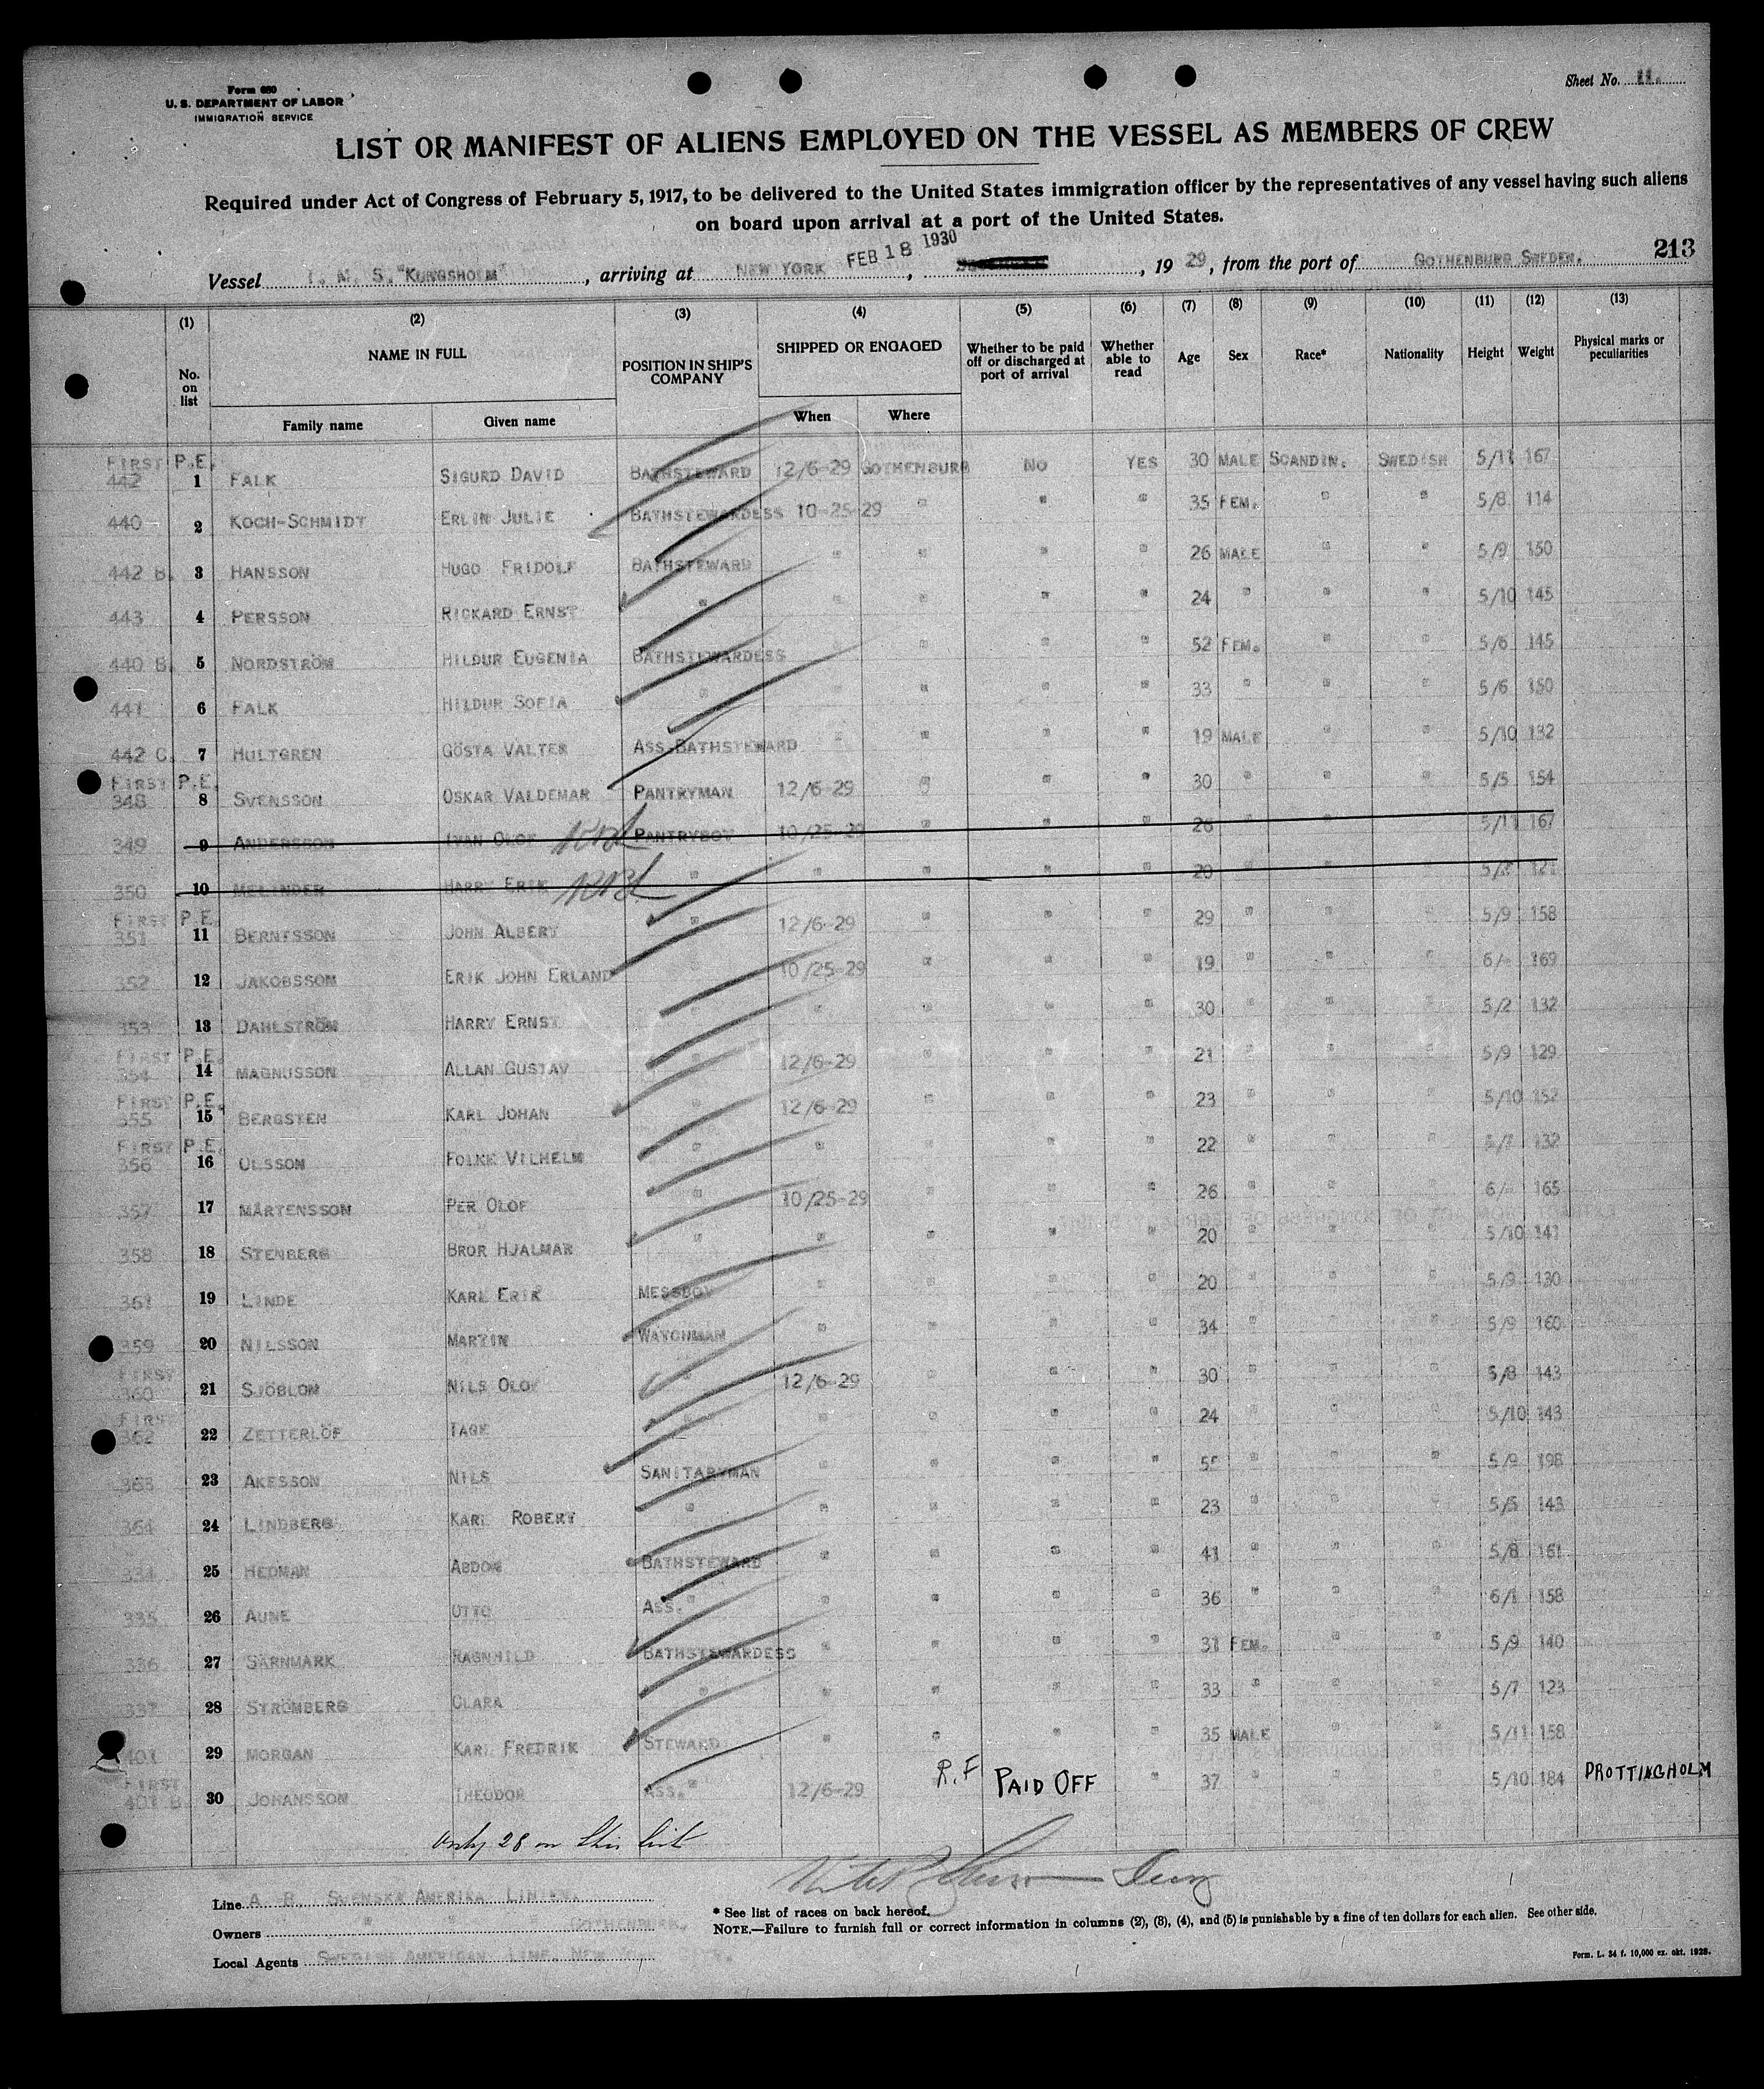 Form 680
U. S. DEPARTMENT OF LABOR
IMMIGRATION SERVICE
Sheet No. 11.
LIST OR MANIFEST OF ALIENS EMPLOYED ON THE VESSEL AS MEMBERS OF CREW
Required under Act of Congress of February 5, 1917, to be delivered to the United States immigration officer by the representatives of any vessel having such aliens
on board upon arrival at a port of the United States.
213
Vessel M. S. "KUNGSHOLM", arriving at NEW YORK FEB 18 1930, 1929, from the port of GOTHENBURG SWEDEN.
(1) (2) (3) (4) (5) (6) (7) (8) (9) (10) (11) (12) (13)
No. on list NAME IN FULL POSITION IN SHIP'S COMPANY SHIPPED OR ENGAGED Whether to be paid off or discharged at port of arrival Whether able to read Age Sex Race* Nationality Height Weight Physical marks or peculiarities
Family name Given name When Where
FIRST P.E.
442 1 FALK SIGURD DAVID BATHSTEWARD 12/6-29 GOTHENBURG NO YES 30 MALE SCANDIN. SWEDISH 5/11 167
440 2 KOCH-SCHMIDT ERLIN JULIE BATHSTEWARDESS 10-25-29 " " " 35 FEM. " " 5/8 114
442 B. 3 HANSSON HUGO FRIDOLF BATHSTEWARD " " " " 26 MALE " " 5/9 150
443 4 PERSSON RICKARD ERNST " " " " " 24 " " " 5/10 145
440 B. 5 NORDSTRÖM HILDUR EUGENIA BATHSTEWARDESS " " " 52 FEM. " " 5/6 145
441 6 FALK HILDUR SOFIA " " " " 33 " " " 5/6 150
442 C. 7 HULTGREN GÖSTA VALTER ASS. BATHSTEWARD " " " " 19 MALE " " 5/10 132
FIRST P.E.
348 8 SVENSSON OSKAR VALDEMAR PANTRYMAN 12/6-29 " " " 30 " " " 5/5 154
349 9 ANDERSSON IVAN OLOF PANTRYBOY 10/25-29 " " " 26 5/11 167
350 10 MELINDER HARRY ERIK " " " " " 20 " " "
FIRST P.E.
351 11 BERNTSSON JOHN ALBERT " 12/6-29 " " " 29 " " " 5/9 158
352 12 JAKOBSSON ERIK JOHN ERLAND " 10/25-29 " " " 19 " " " 6/- 169
353 13 DAHLSTRÖM HARRY ERNST " " " " 30 " " " 5/2 132
FIRST P.E.
354 14 MAGNUSSON ALLAN GUSTAV " 12/6-29 " " " 21 " " " 5/9 129
FIRST P.E.
355 15 BERGSTEN KARL JOHAN " 12/6-29 " " " 23 " " " 5/10 152
FIRST P.E.
356 16 OLSSON FOLKE VILHELM " " " " " 22 " " " 5/7 132
357 17 MÅRTENSSON PER OLOF " 10/25-29 " " " 26 " " " 6/- 165
358 18 STENBERG BROR HJALMAR " " " " " 20 " " " 5/10 141
361 19 LINDE KARL ERIK MESSBOY " " " " 20 " " " 5/9 130
359 20 NILSSON MARTIN WATCHMAN " " " " 34 " " " 5/9 160
FIRST
360 21 SJÖBLOM NILS OLOF " 12/6-29 " " " 30 " " " 5/8 143
FIRST
362 22 ZETTERLÖF TAGE " " " " " 24 " " " 5/10 143
363 23 AKESSON NILS SANITARYMAN " " " " 55 " " " 5/9 198
364 24 LINDBERG KARL ROBERT " " " " " 23 " " " 5/5 143
334 25 HEDMAN ABDON BATHSTEWARD " " " " 41 " " " 5/8 161
335 26 AUNE OTTO ASS. " " " " " 36 " " " 6/1 158
336 27 SÄRNMARK RAGNHILD BATHSTEWARDESS " " " " 31 FEM. " " 5/9 140
337 28 STRÖMBERG CLARA " " " " " 33 " " " 5/7 123
401 29 MORGAN KARL FREDRIK STEWARD " " " " 35 MALE " " 5/11 158
FIRST
401 B 30 JOHANSSON THEODOR ASS. " 12/6-29 R.F PAID OFF " 37 " " " 5/10 184 DROTTINGHOLM
Only 28 on this list
Line A. B. SVENSKA AMERIKA LINIEN.
Owners " " GOTHENBURG.
Local Agents SWEDISH AMERICAN LINE, NEW
* See list of races on back hereof.
NOTE.—Failure to furnish full or correct information in columns (2), (3), (4), and (5) is punishable by a fine of ten dollars for each alien. See other side.
Form. L. 34 f. 10,000 ex. okt. 1928.